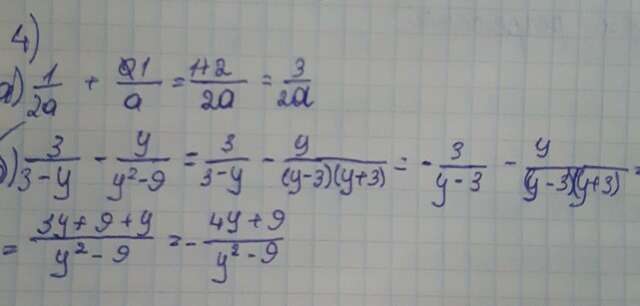 4)
а) 1/2a + 1/a = 1+2/2a = 3/2a
б) 3/3-y - y/y²-9 = 3/3-y - y/(y-3)(y+3) = - 3/y-3 - y/(y-3)(y+3) =
= 3y+9+y/y²-9 = - 4y+9/y²-9